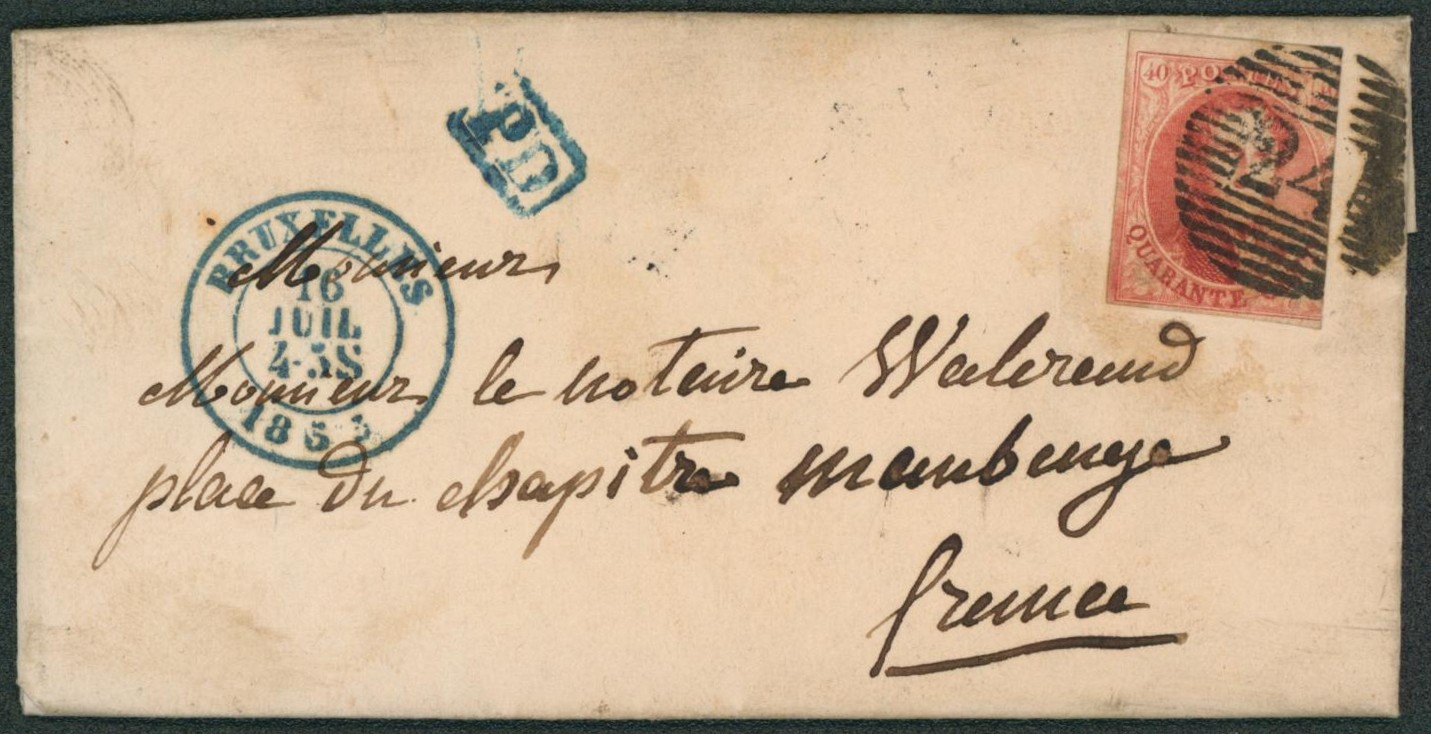 PD
40 POSTES
QUARANTE
24
BRUXELLES
16
JUIL
4-5S
185
Monsieur
Monsieur le notaire Walerand
place du chapitre maubeuge
france